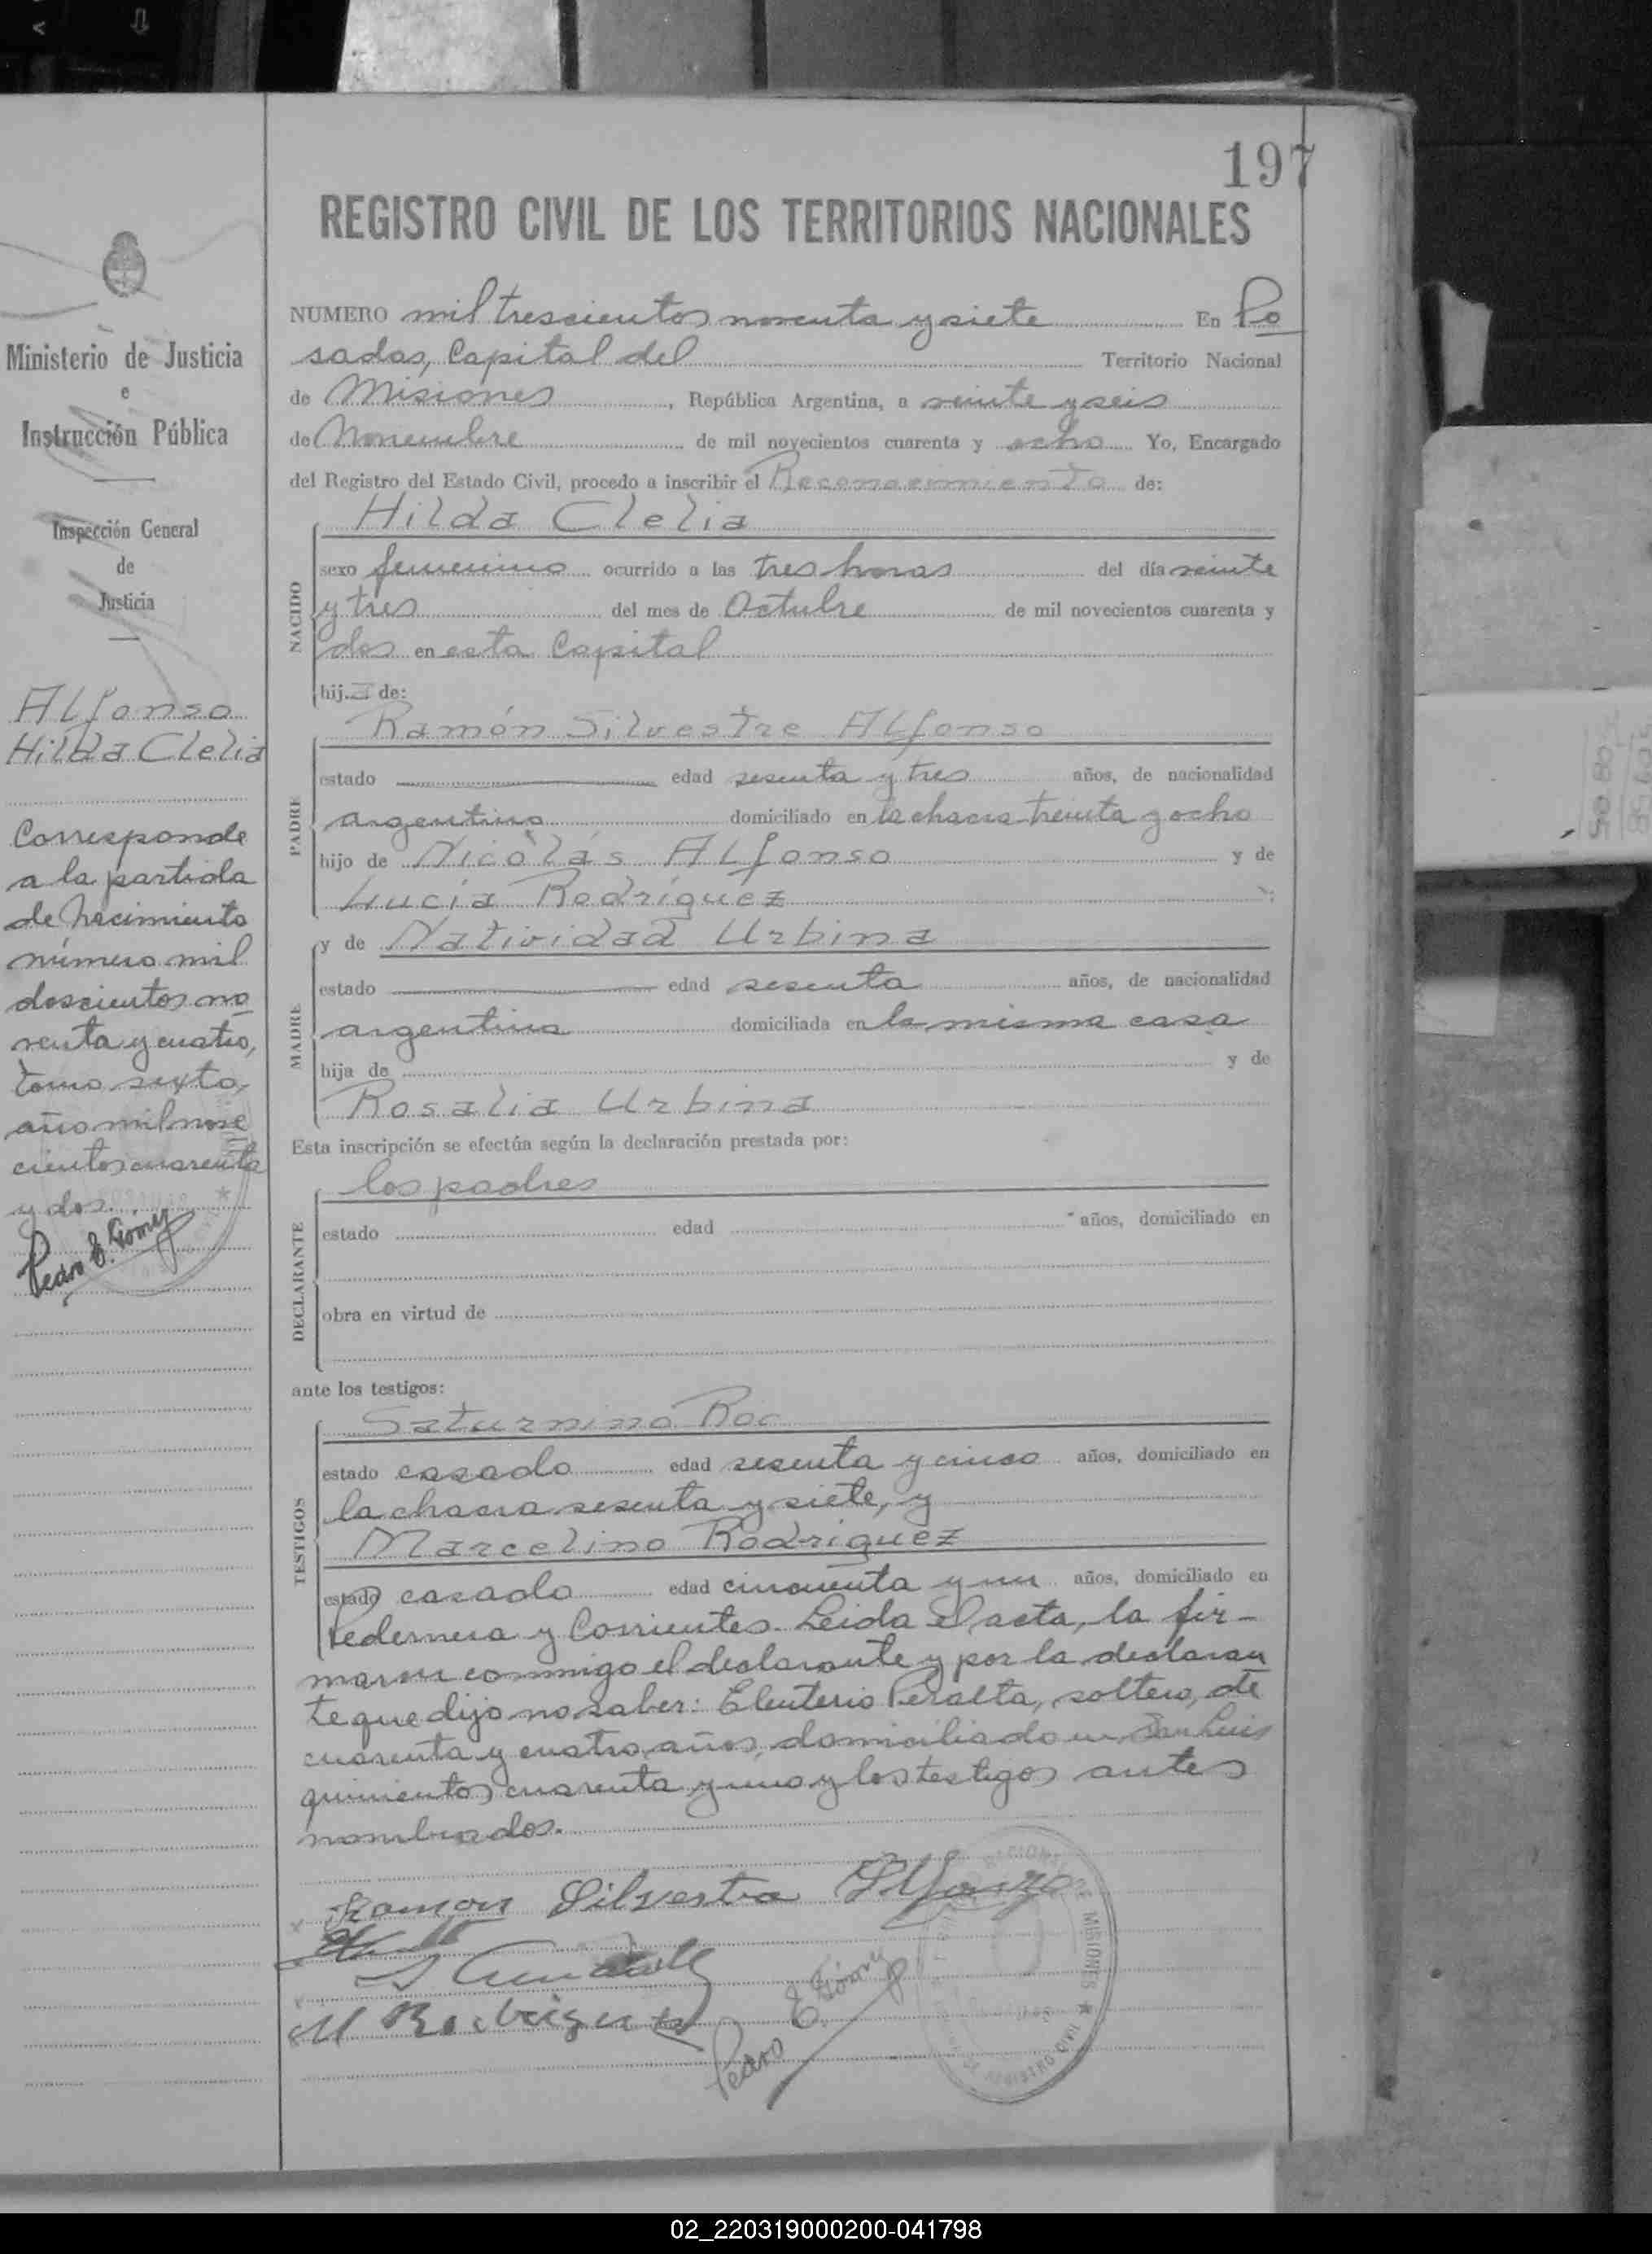 197
REGISTRO CIVIL DE LOS TERRITORIOS NACIONALES
Ministerio de Justicia
e
Instrucción Pública
Inspección General
de
Justicia
Alfonso
Hilda Clelia
Corresponde
a la partida
de Nacimiento
número mil
doscientos no
venta y cuatro,
tomo sexto,
año mil nove
cientos cuarenta
y dos.
Pedro E. Gómez
NUMERO mil trescientos noventa y siete En Po
sadas, Capital del Territorio Nacional
de Misiones, República Argentina, a veinte y seis
de Noviembre de mil novecientos cuarenta y ocho Yo, Encargado
del Registro del Estado Civil, procedo a inscribir el Reconocimiento de:
NACIDO
Hilda Clelia
sexo femenino ocurrido a las tres horas del día veinte
y tres del mes de Octubre de mil novecientos cuarenta y
dos en esta Capital
hija de:
PADRE
Ramón Silvestre Alfonso
estado edad sesenta y tres años, de nacionalidad
argentino domiciliado en la chacra treinta y ocho
hijo de Nicolás Alfonso y de
Lucía Rodríguez;
MADRE
y de Natividad Urbina
estado edad sesenta años, de nacionalidad
argentina domiciliada en la misma casa
hija de y de
Rosalia Urbina
Esta inscripción se efectúa según la declaración prestada por:
DECLARANTE
los padres
estado edad años, domiciliado en
obra en virtud de
ante los testigos:
TESTIGOS
Saturnino Roc
estado casado edad sesenta y cinco años, domiciliado en
la chacra sesenta y siete, y
Marcelino Rodriguez
estado casado edad cincuenta y un años, domiciliado en
Pedernera y Corrientes. Leida el acta, la fir-
maron conmigo el declarante y por la declaran
te que dijo no saber: Eleuterio Peralta, soltero, de
cuarenta y cuatro años, domiciliado en San Luis
quinientos cuarenta y uno y los testigos antes
nombrados.
Ramon Silvestra Alfonzo
M Rodriguez
Pedro E. Gómez
MISIONES ★ REGISTRO CIVIL
02_220319000200-041798